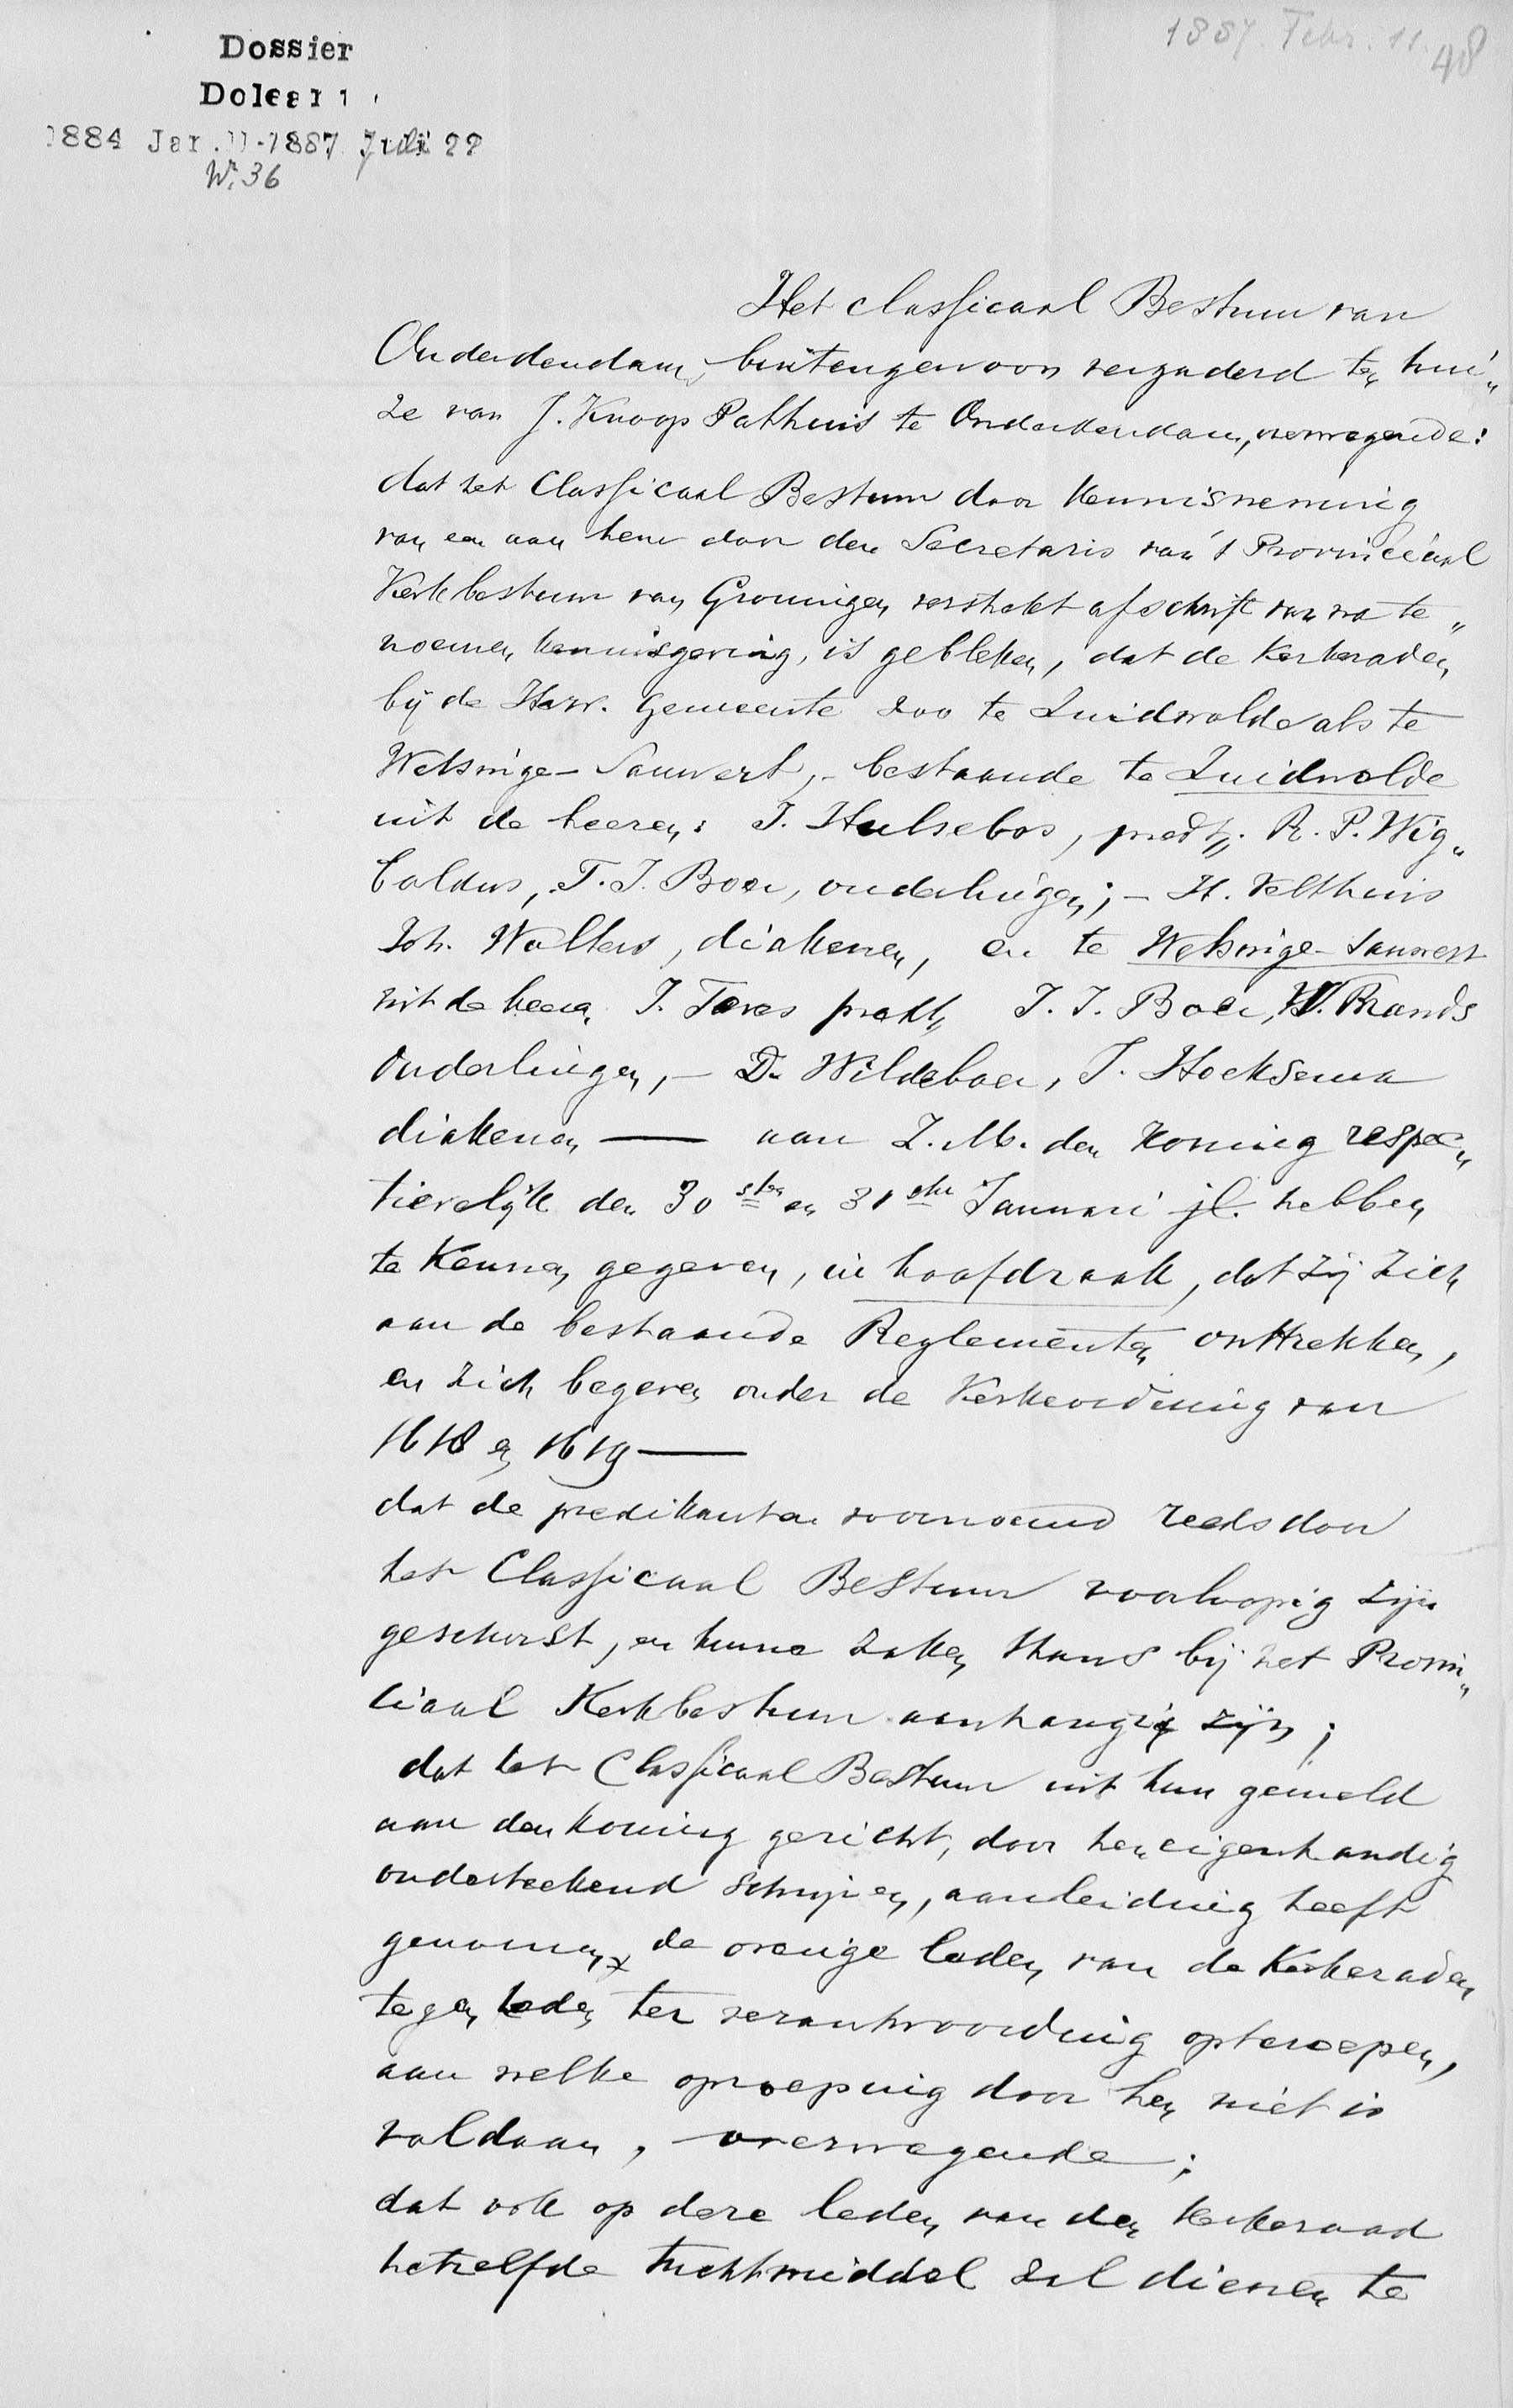 1887. Febr. 11.
48
Dossier
1884 Jan. 11-1887 Juli 22
No. 36
Het classicaal Bestuur van
Onderdendam, buitengewoon vergaderd ten hui„
ze van J. Knoop Pathuis te Onderdendam, overwegende:
dat het Classicaal Bestuur door kennisneming
van een aan hem door den Secretaris van 't Provinciaal
Kerkbestuur van Groningen verstrekt afschrift van na te„
noemen kennisgeving, is gebleken, dat de kerkeraden
bij de Herv. Gemeente zoo te Zuidwolde als te
Wetsinge-Sauwert, - bestaande te Zuidwolde
uit de heeren: J. Hulsebos, predt. R. P. Wig„
boldus, T. J. Boer, ouderlingen; - H. Velthuis
Joh. Wolters, diakenen, en te Wetsinge-Sauwert
uit de heeren J. Tères predt, J. J. Boer, W. Brands
Ouderlingen, - D. Wildeboer, J. Hoeksema
diakenen — aan Z. M. den Koning respec„
tievelijk den 30sten en 31sten Januari jl. hebben
te kennen gegeven, in hoofdzaak, dat zij zich
aan de bestaande Reglementen onttrekken,
en zich begeven onder de Kerkeordening van
1618 en 1619 —
dat de predikanten voornoemd reeds door
het Classicaal Bestuur voorloopig zijn
geschorst, en hunne zaken thans bij het Provin„
ciaal Kerkbestuur aanhangig zijn;
dat het Classicaal Bestuur uit hun gemeld
aan den koning gericht, door hen eigenhandig
onderteekend schrijven, aanleiding heeft
genomen, de overige leden van de Kerkeraden
tegen heden ter verantwoording opteroepen,
aan welke oproeping door hen niet is
voldaan, overwegende;
dat ook op deze leden van den kerkeraad
hetzelfde tuchtmiddel zal dienen te